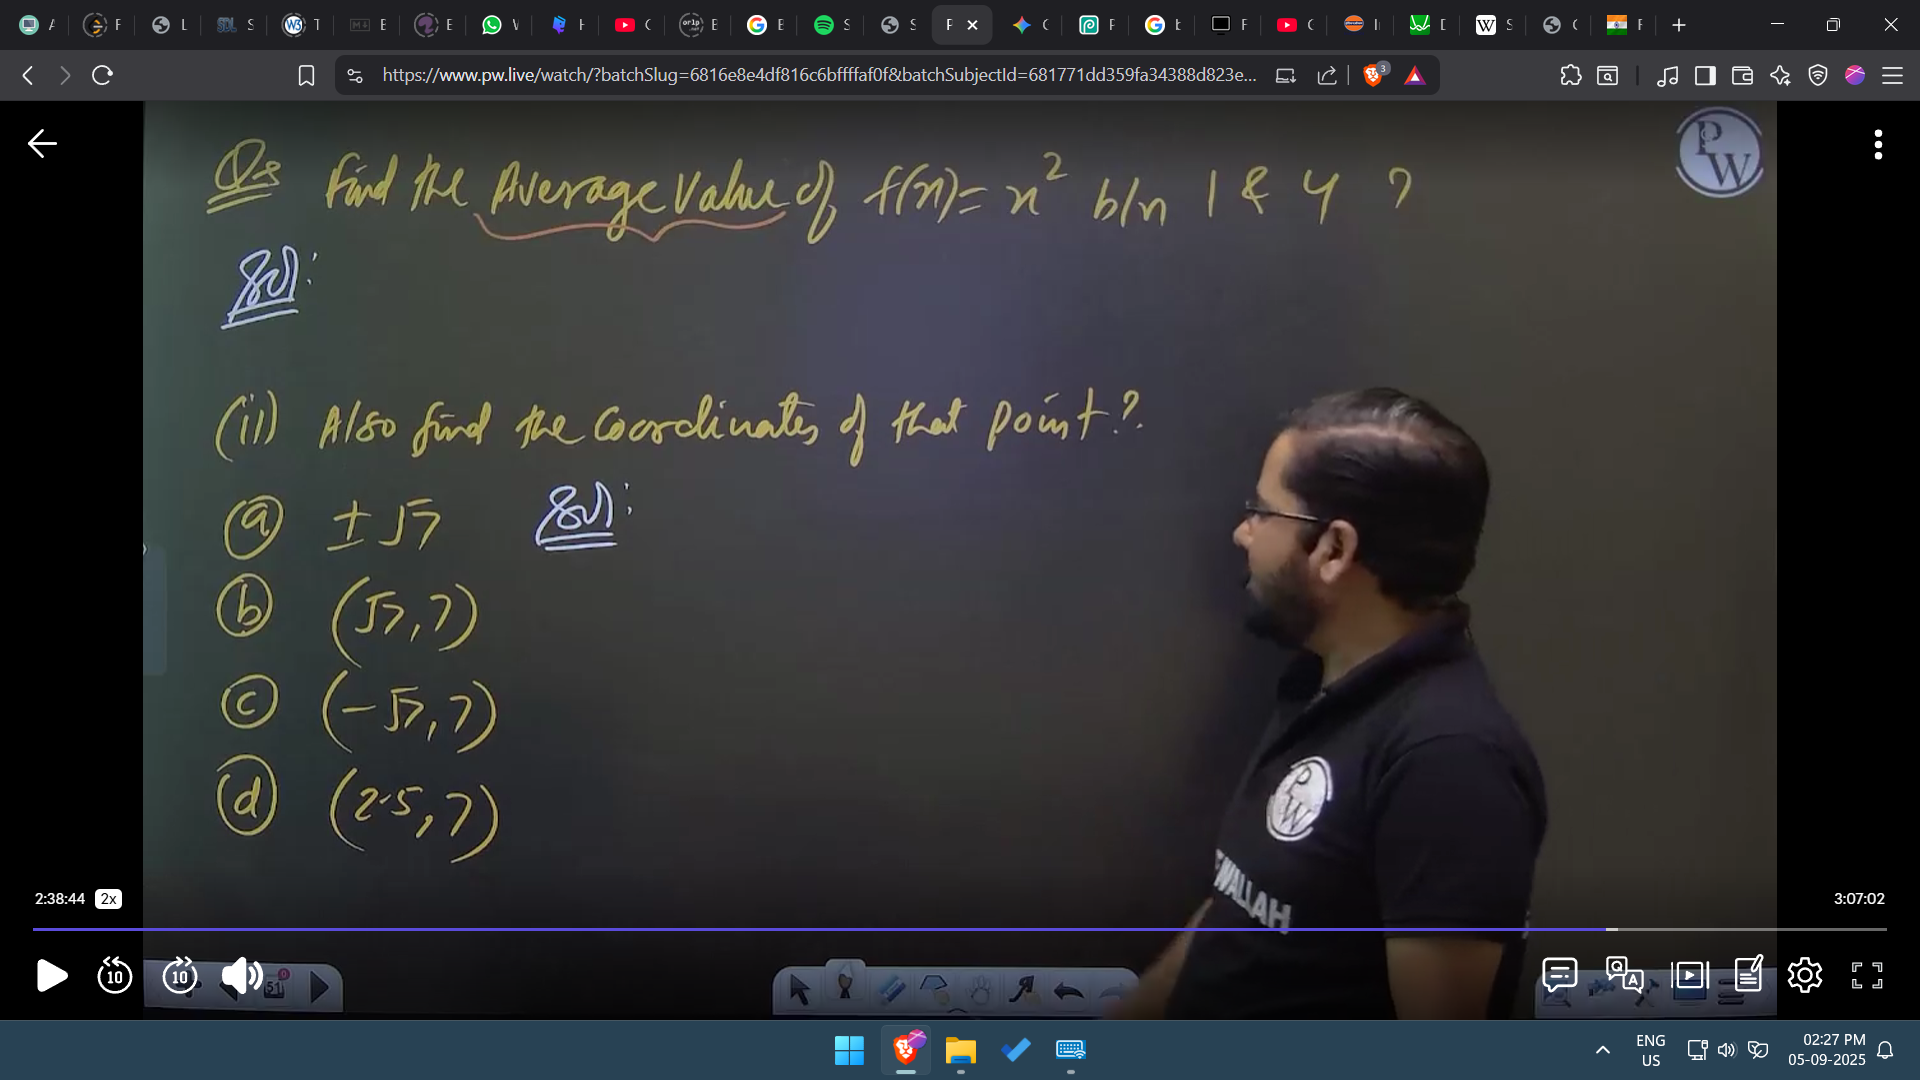 A
F
L
S
T
E
E
W
F
C
E
E
S
S
F
C
F
E
F
C
I
D
S
C
F
https://www.pw.live/watch/?batchSlug=6816e8e4df816c6bffffaf0f&batchSubjectId=681771dd359fa34388d823e...
3
Qs Find the Average Value of f(x)= x² b/n 1 & 4 ?
PW
Sol:
(ii) Also find the Coordinates of that point?
(a) ± √7 Sol:
(b) (√7, 7)
(c) (-√7, 7)
(d) (2.5, 7)
PW
WALLAH
2:38:44 2x
3:07:02
10
10
51
0
ENG
US
02:27 PM
05-09-2025